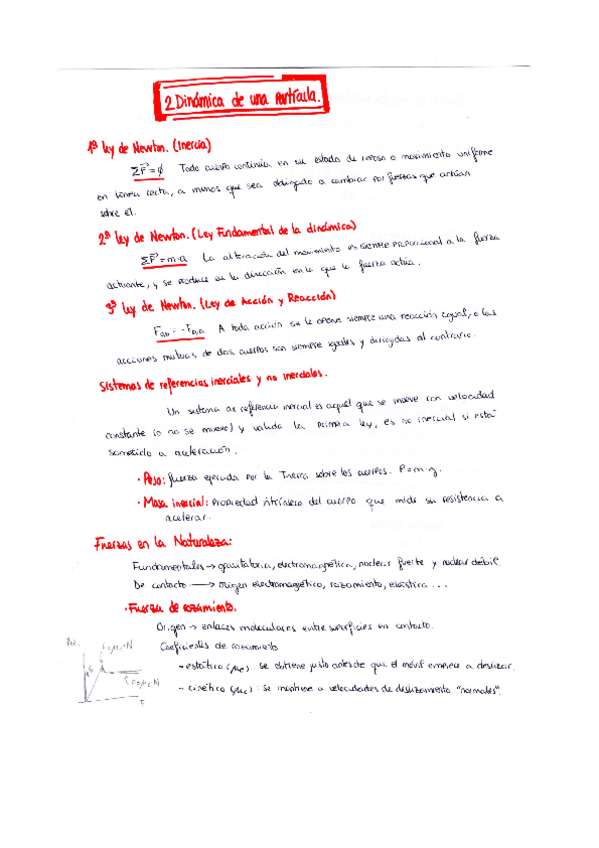 2 Dinámica de una partícula.
1ª Ley de Newton. (Inercia)
ΣF⃗ = ∅ Todo cuerpo continúa en su estado de reposo o movimiento uniforme
en línea recta, a menos que sea obligado a cambiar por fuerzas que actúan
sobre él.
2ª Ley de Newton. (Ley Fundamental de la dinámica)
ΣF⃗ = m·a La alteración del movimiento es siempre proporcional a la fuerza
actuante, y se produce en la dirección en la que la fuerza actúa.
3ª Ley de Newton. (Ley de Acción y Reacción)
Fa,b = -Fb,a A toda acción se le opone siempre una reacción igual, o las
acciones mutuas de dos cuerpos son siempre iguales y dirigidas al contrario.
Sistemas de referencias inerciales y no inerciales.
Un sistema de referencia inercial es aquel que se mueve con velocidad
constante (o no se mueve) y valida la primera ley, es no inercial si está
sometido a aceleración.
· Peso: fuerza ejercida por la Tierra sobre los cuerpos. P=m·g.
· Masa inercial: Propiedad intrínseca del cuerpo que mide su resistencia a
acelerar.
Fuerzas en la Naturaleza:
Fundamentales → gravitatoria, electromagnética, nuclear fuerte y nuclear débil.
De contacto → origen electromagnético, rozamiento, elástica ...
· Fuerza de rozamiento.
Origen → enlaces moleculares entre superficies en contacto.
Coeficientes de rozamiento
- estático (μe) : se obtiene justo antes de que el móvil empiece a deslizar.
- cinético (μc) : se mantiene a velocidades de deslizamiento "normales".
F